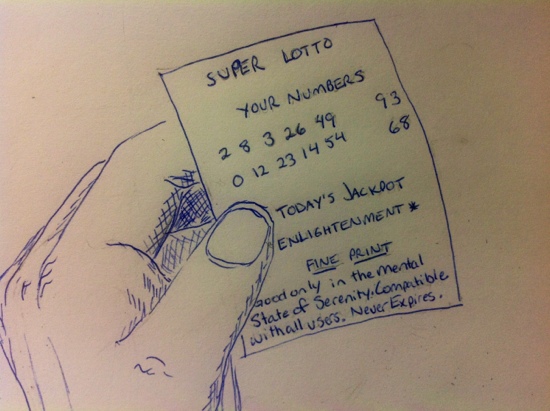 SUPER LOTTO
YOUR NUMBERS
2 8 3 26 49 93
0 12 23 14 54 68
TODAY'S JACKPOT
ENLIGHTENMENT*
FINE PRINT
Good only in the mental
State of Serenity. Compatible
with all users. Never Expires.